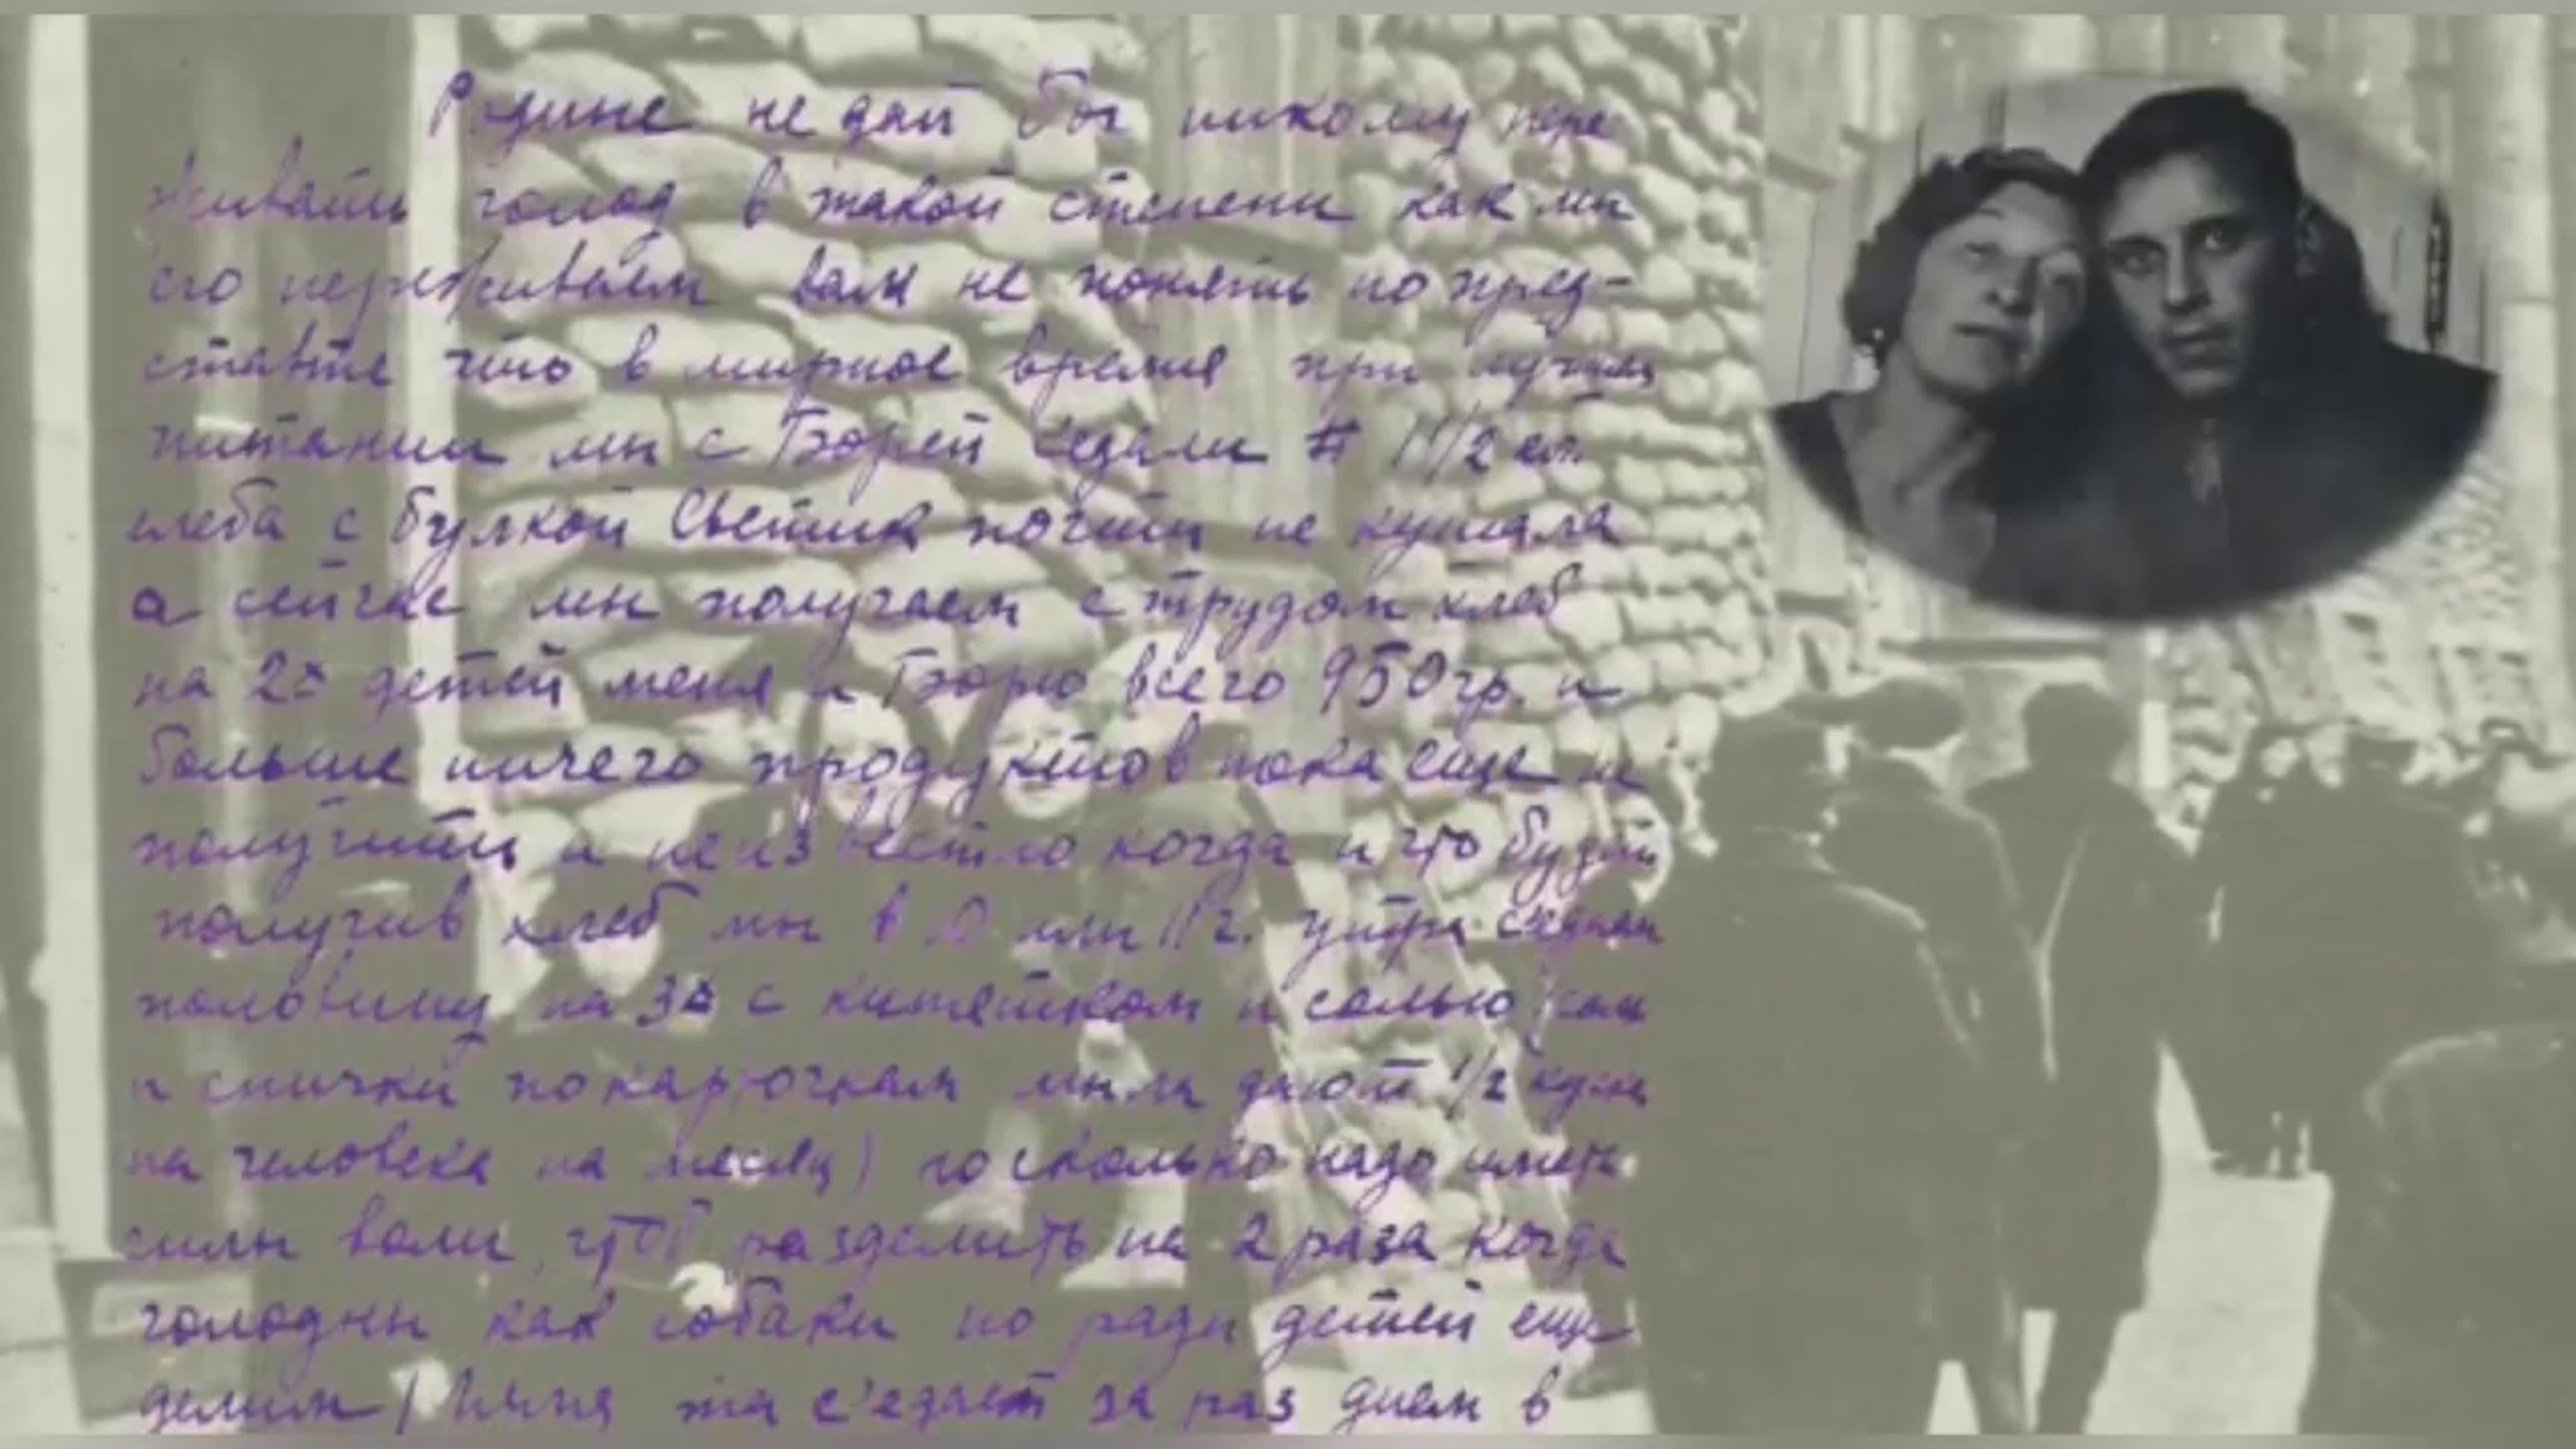 Родние не дай Бог никому пере
живать голод в такой степени как мы
его переживаем вам не понять но пред-
ставте что в мирное время при лучшем
питании мы с Бэорей седали 1 1/2 кг.
хлеба с булкой Светик почти не кушала
а сейчас мы получаем с трудом хлеб
на 2х детей меня и Бэорю всего 950 гр. и
больше ничего продуктов пока еще не
получили и неизвестно когда и что будет
получив хлеб мы в 10 или 11 ч. утра с'едаем
половину на 3х с кипятком и солью (соль
и спички по карточкам мыла дают 1/2 куска
на человека на месяц) то сколько надо иметь
силы воли, чтоб разделить на 2 раза когда
голодны как собаки но ради детей еще
делим / Няня та с'едает за раз днем в